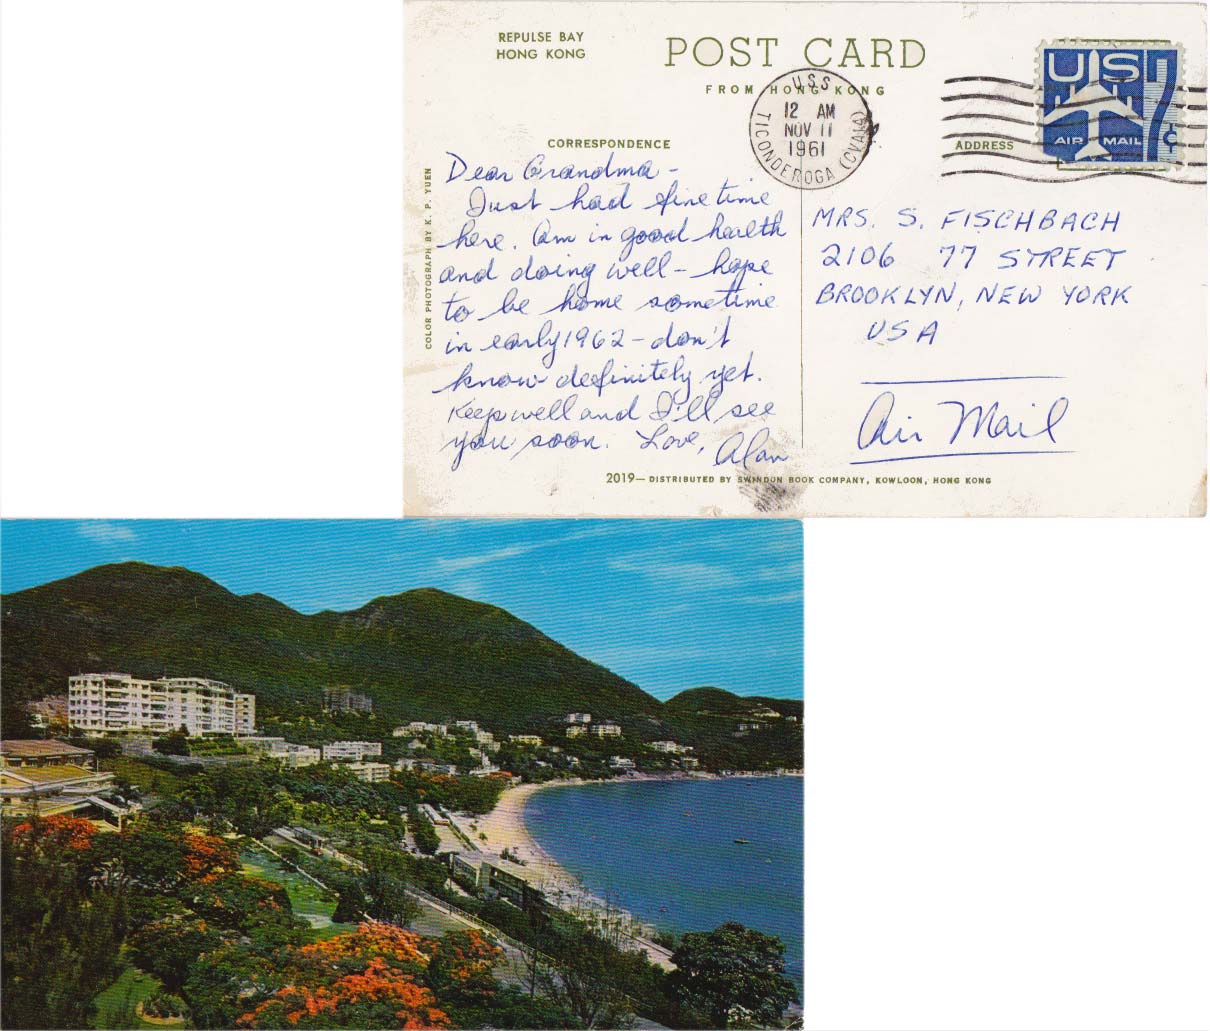 REPULSE BAY
HONG KONG
POST CARD
FROM HONG KONG
USS
TICONDEROGA (CVA14)
12 AM
NOV 11
1961
US
7¢
AIR MAIL
CORRESPONDENCE
ADDRESS
COLOR PHOTOGRAPH BY K. P. YUEN
Dear Grandma -
Just had fine time
here. Am in good health
and doing well - hope
to be home sometime
in early 1962 - don't
know definitely yet.
Keep well and I'll see
you soon. Love, Alan
MRS. S. FISCHBACH
2106 77 STREET
BROOKLYN, NEW YORK
USA
Air Mail
2019— DISTRIBUTED BY SWINDON BOOK COMPANY, KOWLOON, HONG KONG